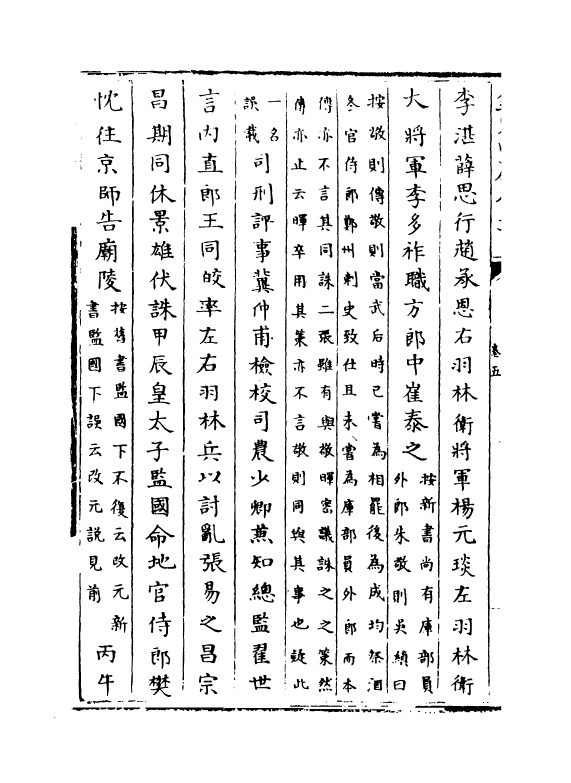 李湛薛思行趙承恩右羽林衛將軍楊元琰左羽林衛
大將軍李多祚職方郎中崔泰之按新書尚有庫部員
外郎朱敬則吳縝曰
按敬則傳敬則當武后時已嘗為相罷後為成均祭酒
冬官侍郎鄭州刺史致仕且未嘗為庫部員外郎而本
傳亦不言其同誅二張雖有與敬暉密議誅之之策然
傳亦止云暉卒用其策亦不言敬則同與其事也疑此
一名
誤載司刑評事冀仲甫檢校司農少卿蒹知總監翟世
言内直郎王同皎率左右羽林兵以討亂張易之昌宗
昌期同休景雄伏誅甲辰皇太子監國命地官侍郎樊
忱往京師告廟陵按舊書監國下不復云改元新
書監國下誤云改元説見前丙午
卷五